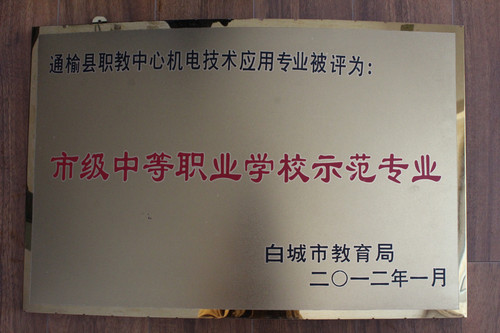 通榆县职教中心机电技术应用专业被评为：
市级中等职业学校示范专业
白城市教育局
二〇一二年一月